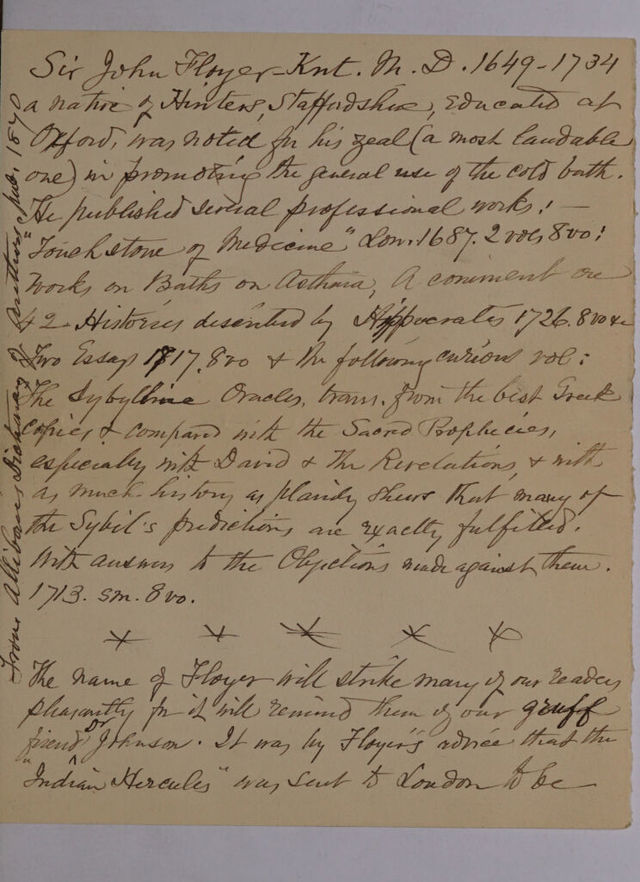 Sir John Floyer - Knt. M. D. 1649-1734
a native of Hinters, Staffordshire, Educated at
Oxford, was noted for his zeal (a most laudable
one) in promoting the general use of the cold bath.
He published several professional works: -
"Touchstone of Medicine" Lon. 1687. 2 vols 8vo:
Works on Baths on Asthma, A comment on
42 Histories described by Hippocrates 1726. 8vo &c
Two Essays 1717. 8vo & the following curious vol:
The Sybylline Oracles, trans. from the best Greek
copies & compared with the Sacred Prophecies,
especially with David & the Revelations, & with
as much history as plainly shews that many of
the Sybil's predictions are exactly fulfilled.
With answers to the Objections made against them.
1713. sm. 8vo.
The name of Floyer will strike many of our readers
pleasantly for it will remind them of our gruff
friend Dr Johnson. It was by Floyer's advice that the
"Indian Hercules" was sent to London to be
From Allibone's Dictionary of Authors pub. 1870